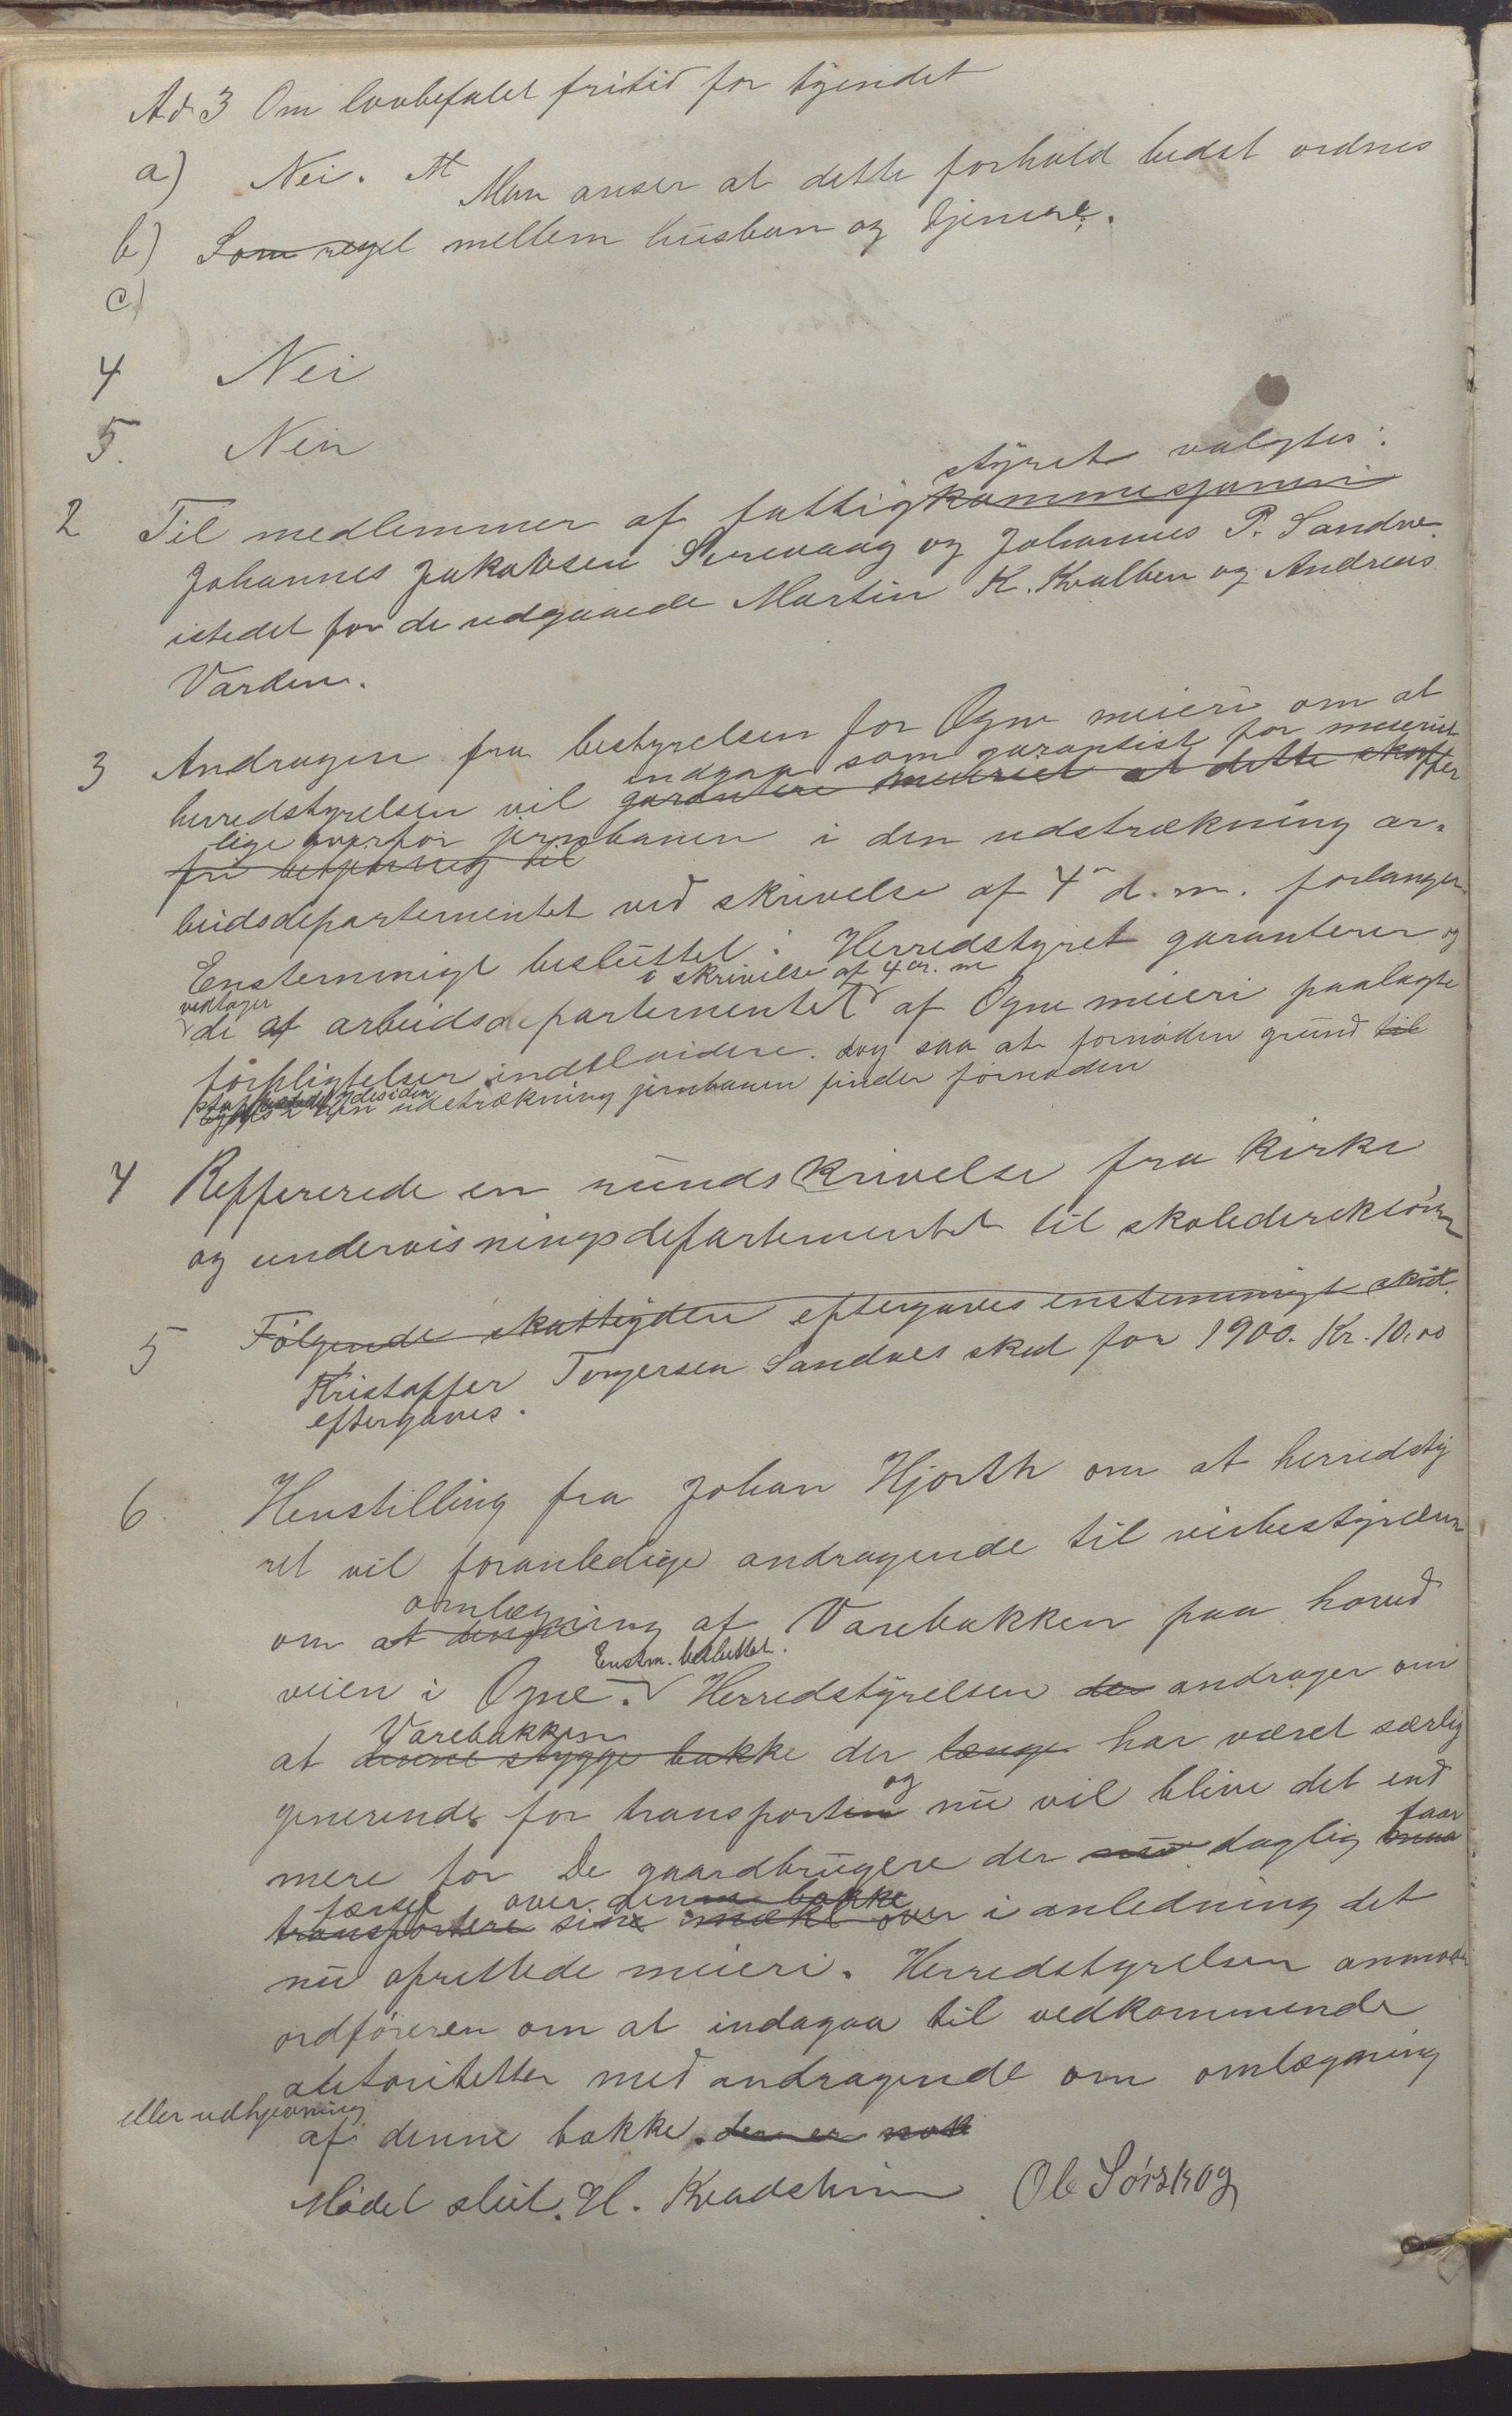 Ad 3 Om lovbefalet fritid for tyendet
a) Nei. M Man anser at dette forhold bedst ordnes
b) Som regel mellem husbon og tjenere.
c)
4 Nei
5. Nein
styret valgtes:
2 Til medlemmer af fattigkommesjonen
Johannes Jakobsen Sirevaag og Johannes P. Sandve
istedet for de udgaaede Martin K. Kvalben og Andreas
Varden.
3 Andragen fra bestyrelsen for Ogne meieri om at
indgaa som garantist for meieriet
herredstyrelsen vil garantere meieriet at dette skaffer
lige overfor jernbanen i den udstrækning ar-
fri til
beidsdepartementet ved skrivelse af 4 d.m. forlanger.
Enstemmigt besluttet: Herredstyret garanterer og
vedtager i skrivelse af 4 d. m
de af arbeidsdepartementet af Ogne meieri paalagte
forpligtelser indtil videre. dog saa at fornøden grund til
i den udstrækning jernbanen finder fornøden
4 Reffererede en rundskrivelse fra kirke
og undervisningsdepartementet til skoledirektøren
5 Følgende skattyden eftergaves enstemmigt skat.
Kristoffer Torgersen Sandves skat for 1900. Kr. 10.00
eftergaves.
6 Henstilling fra Johan Hjorth om at herredsty
ret vil foranledige andragende til veibestyrelsen
omlægning af Varebakken paa hoved
om at denne
Enstm. besluttet.
veien i Ogne. Herredstyrelsen der andrager om
Varebakken
at denne stygge bakke der længe har været særlig
generende for transporten og nu vil blive det end
mere for De gaardbrugere der nu daglig maa faar
færsel over denne bakke
transportere sine melk over i anledning det
nu oprettede meieri. Herredstyrelsen anmoder
ordføreren om at indgaa til vedkommende
autoritetter med andragende om omlægning
eller udhjevning
af denne bakke. den er nok
Mødet slut. H. Kvadsheim Ole Sørskog